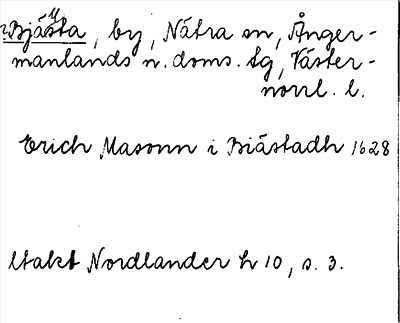 Bjästa, by, Nätra sn, Ånger-
manlands n. doms. tg, Väster-
norrl. l.
Erich Masonn i Biästadh 1628
Utakt Nordlander h 10, s. 3.